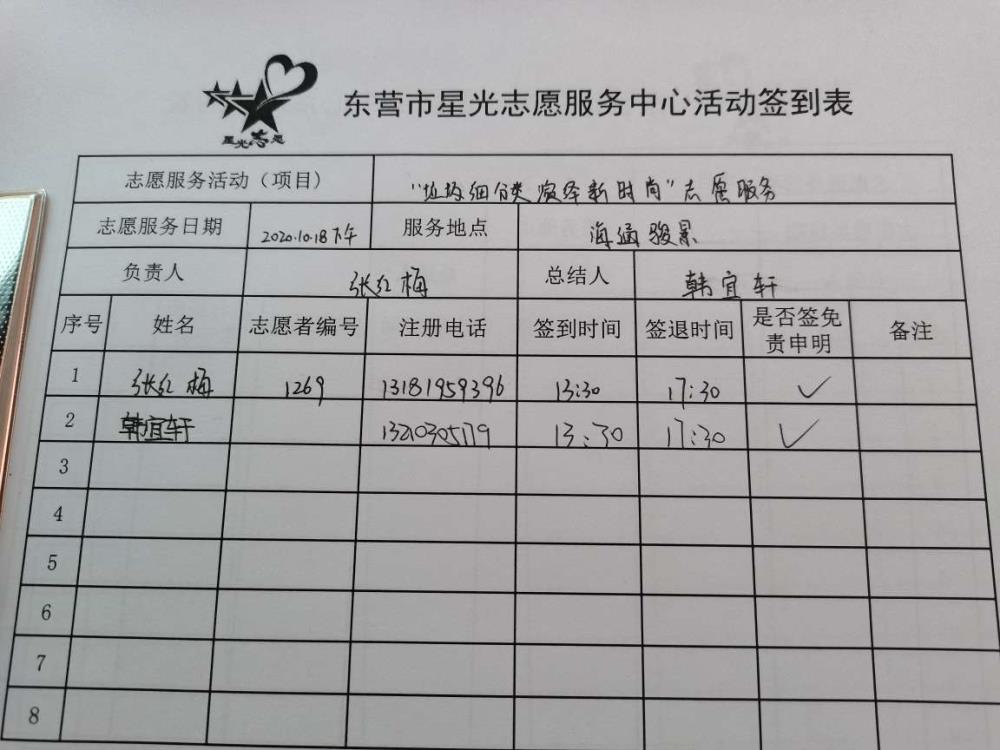 星光志愿
东营市星光志愿服务中心活动签到表
志愿服务活动（项目） “垃圾细分类 演绎新时尚”志愿服务
志愿服务日期 2020.10.18下午 服务地点 海通骏景
负责人 张红梅 总结人 韩宜轩
序号 姓名 志愿者编号 注册电话 签到时间 签退时间 是否签免责申明 备注
1 张红梅 1269 13181959396 13:30 17:30 ✓
2 韩宜轩 13210305179 13:30 17:30 ✓
3
4
5
6
7
8